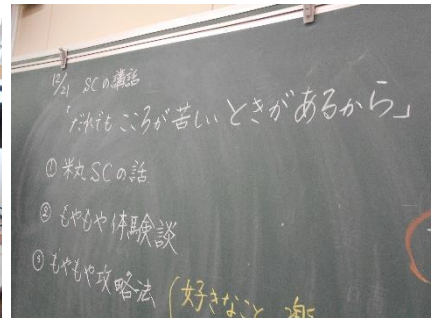 12/21 SCの講話
「だれでもこころが苦しいときがあるから」
① 米丸SCの話
② もやもや体験談
③ もやもや攻略法
(好きなこと 楽